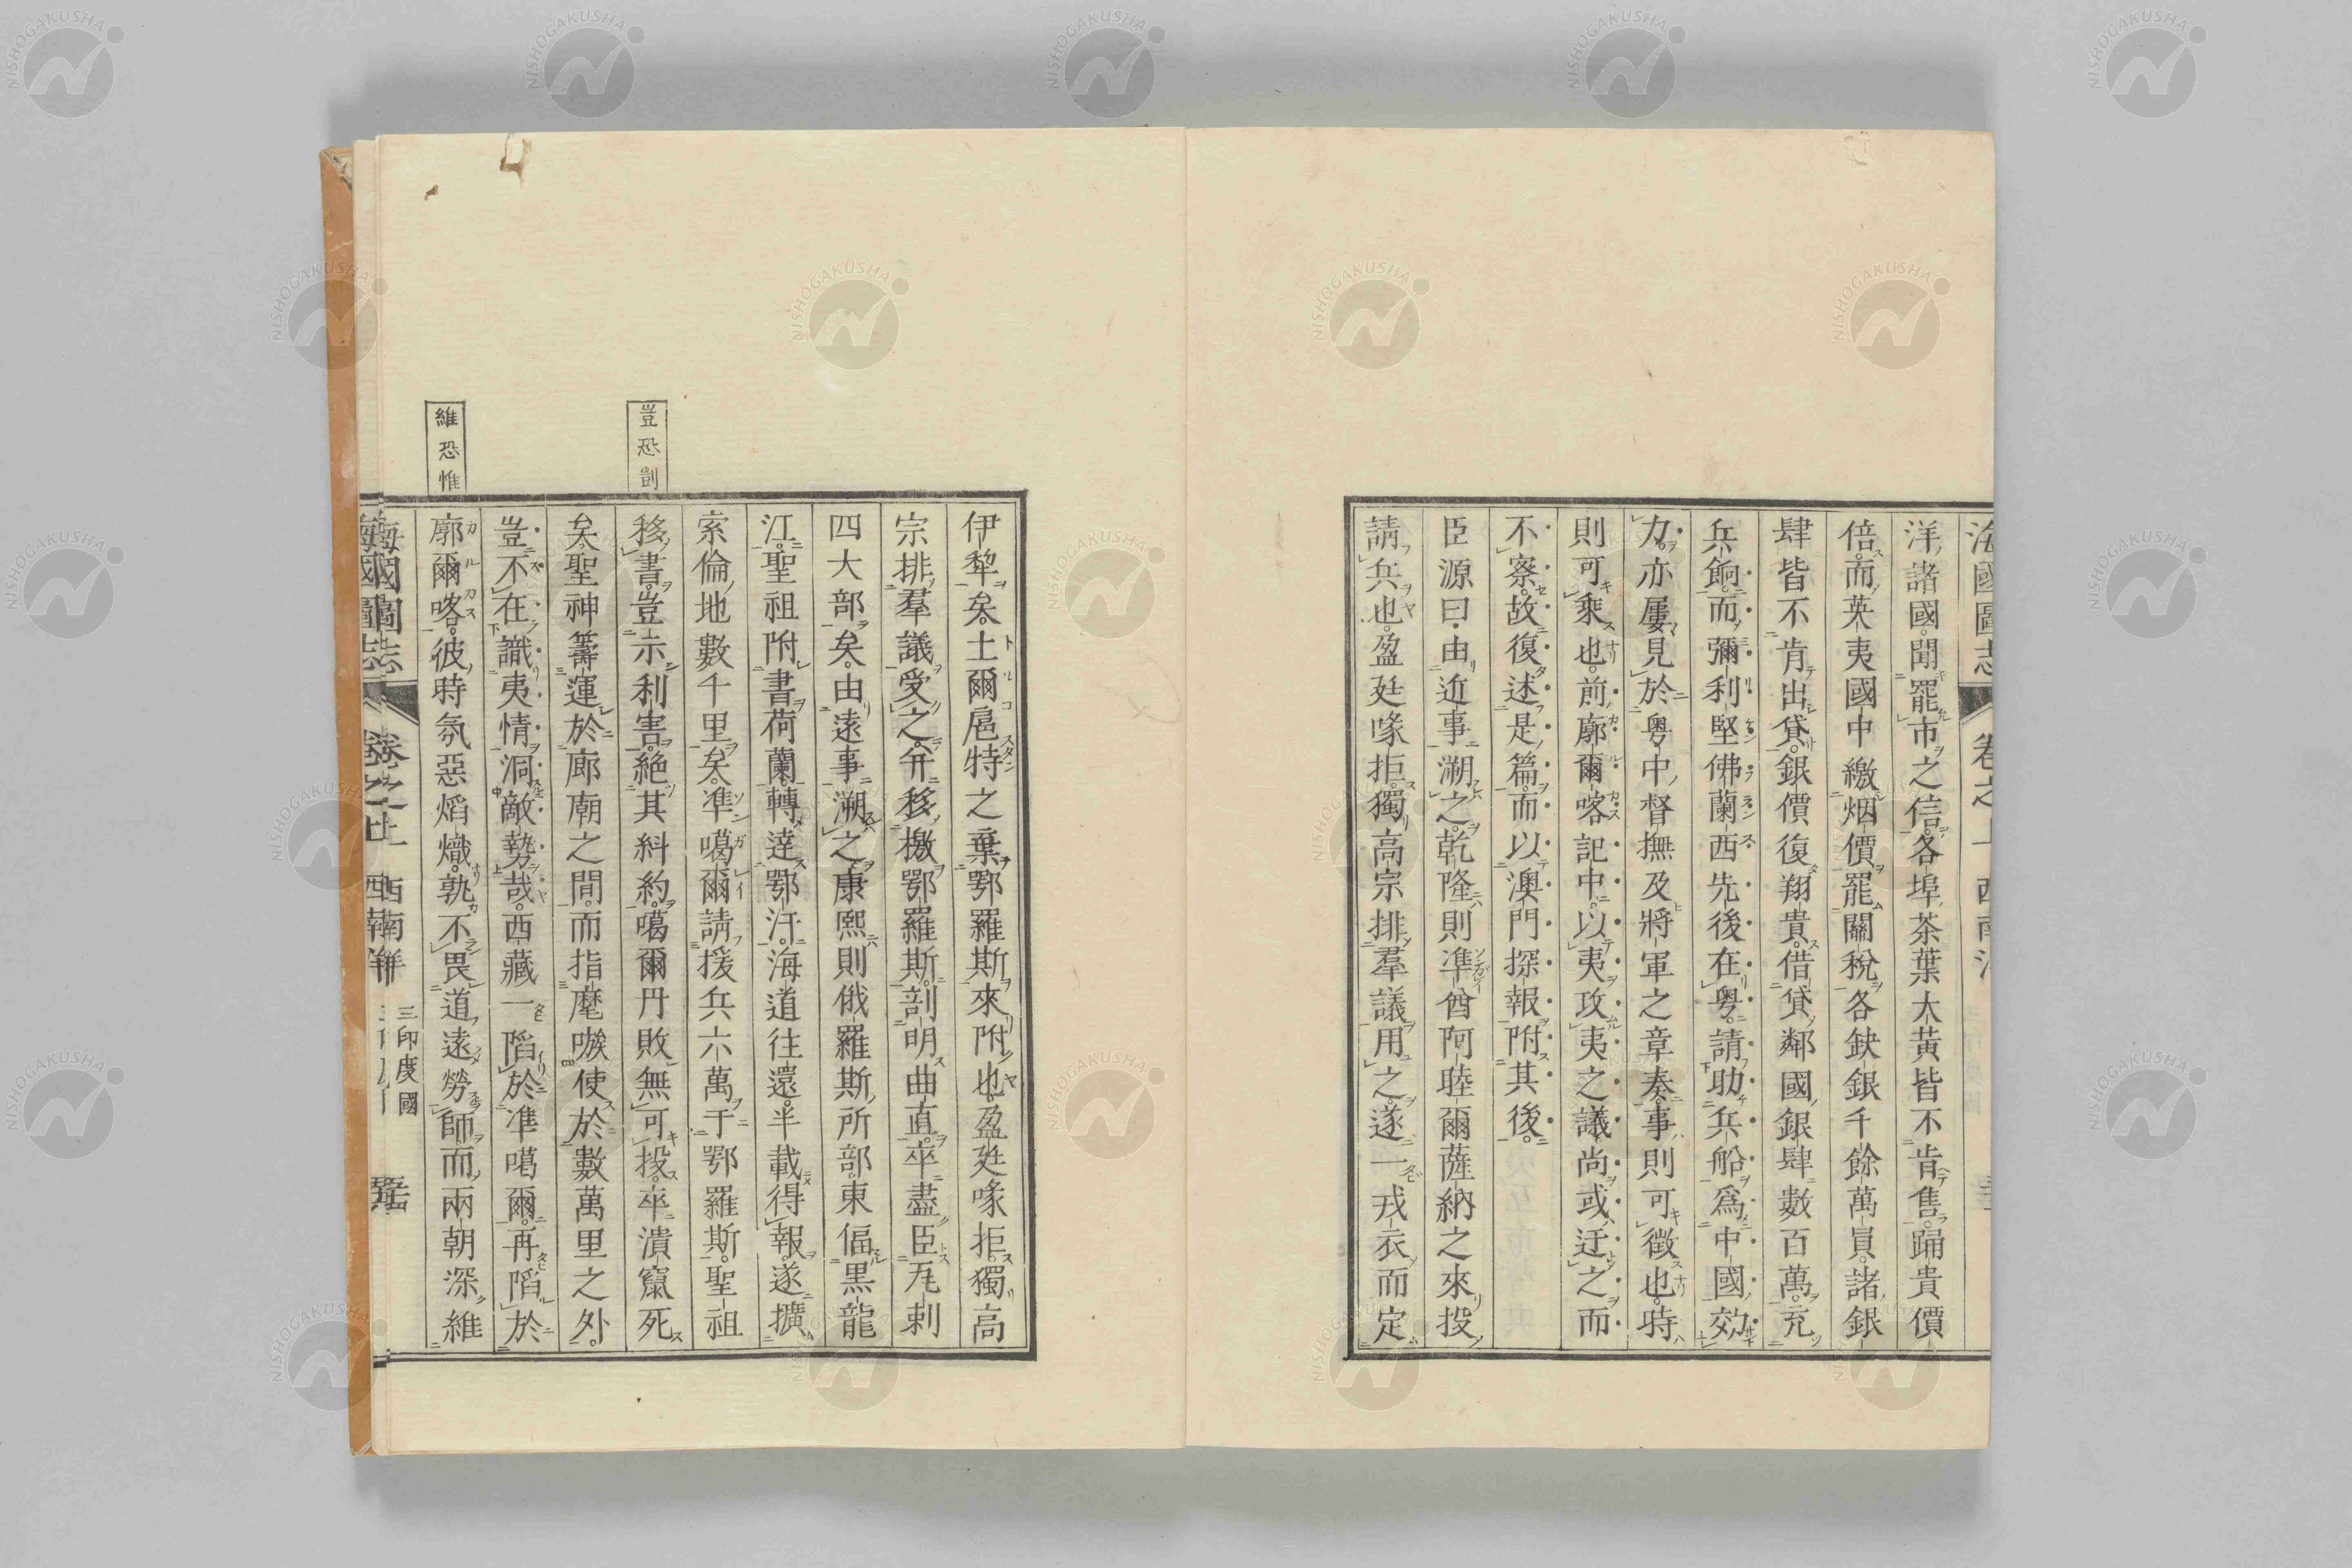 海國圖志
洋諸國聞罷市之信各埠茶葉大黃皆不肯售踊貴價
倍而英夷國中繳烟價罷關稅各鈌銀千餘萬員諸銀
肆皆不肯出貸銀價復翔貴借貸鄰國銀肆數百萬充
兵餉而彌利堅佛蘭西先後在粵請助兵船爲中國效
力亦屢見於粵中督撫及將軍之章奏事則可徵也時
則可乘也前廓爾喀記中以夷攻夷之議尚或迂之而
不察故復述是篇而以澳門探報附其後
臣源曰由近事溯之乾隆則準酋阿睦爾薩納之來投
請兵也盈廷喙拒獨高宗排羣議用之遂一戎衣而定
伊犂矣土爾扈特之棄鄂羅斯來附也盈廷喙拒獨高
宗排羣議受之弁移檄鄂羅斯剖明曲直卒盡臣厄剌
四大部矣由遠事溯之康熙則俄羅斯所部東偪黑龍
江聖祖附書荷蘭轉達鄂汗海道往還半載得報遂擴
索倫地數千里矣準噶爾請援兵六萬于鄂羅斯聖祖
移書豈示利害絕其糾約噶爾丹敗無可投卒潰竄死
矣聖神籌運於廊廟之間而指麾嗾使於數萬里之外
豈不在識夷情洞敵勢哉西藏一陷於準噶爾再陷於
廓爾喀彼時氛惡熖熾孰不畏道遠勞師而兩朝深維
豈恐剴
維恐惟
海國圖志
西南洋
三印度國
NISHOGAKUSHA